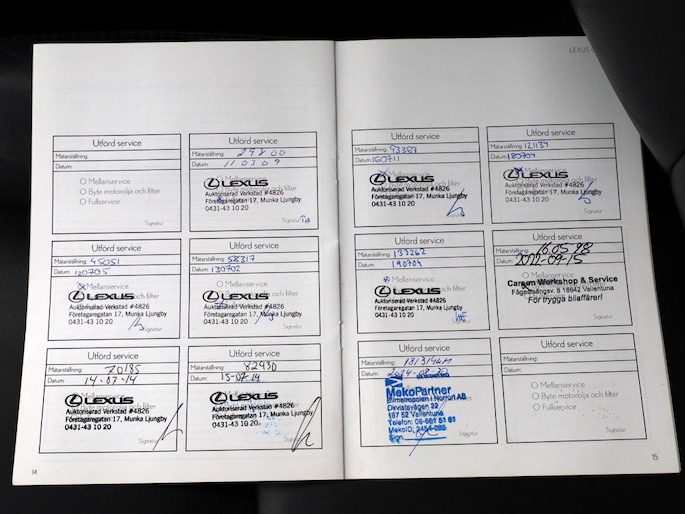 LEXUS
Utförd service
Mätarställning:
Datum:
Mellanservice
Byte motorolja och filter
Fullservice
Signatur
Utförd service
Mätarställning: 29800
Datum: 110309
LEXUS
Auktoriserad Verkstad #4826
Företagaregatan 17, Munka Ljungby
0431-43 10 20
Signatur
Utförd service
Mätarställning: 45051
Datum: 120705
LEXUS
Auktoriserad Verkstad #4826
Företagaregatan 17, Munka Ljungby
0431-43 10 20
Signatur
Utförd service
Mätarställning: 58317
Datum: 130702
LEXUS
Auktoriserad Verkstad #4826
Företagaregatan 17, Munka Ljungby
0431-43 10 20
Signatur
Utförd service
Mätarställning: 70185
Datum: 14-07-14
LEXUS
Auktoriserad Verkstad #4826
Företagaregatan 17, Munka Ljungby
0431-43 10 20
Signatur
Utförd service
Mätarställning: 82930
Datum: 15-07-14
LEXUS
Auktoriserad Verkstad #4826
Företagaregatan 17, Munka Ljungby
0431-43 10 20
14
Utförd service
Mätarställning: 93387
Datum: 160711
LEXUS
Auktoriserad Verkstad #4826
Företagaregatan 17, Munka Ljungby
0431-43 10 20
Signatur
Utförd service
Mätarställning: 121134
Datum: 180704
LEXUS
Auktoriserad Verkstad #4826
Företagaregatan 17, Munka Ljungby
0431-43 10 20
Signatur
Utförd service
Mätarställning: 133262
Datum: 190704
LEXUS
Auktoriserad Verkstad #4826
Företagaregatan 17, Munka Ljungby
0431-43 10 20
Signatur
Utförd service
Mätarställning:
Datum: 2022-09-15
Carson Workshop & Service
18642 Vallentuna
För trygga bilaffärer!
Signatur
Utförd service
Mätarställning:
Datum:
MekoPartner
Bilmetropolen i Norrort AB
Okvistavägen 22
187 52 Vallentuna
Telefon:
MekoID:
Sign
Signatur
Utförd service
Mätarställning:
Datum:
Mellanservice
Byte motorolja och filter
Fullservice
Signatur
15